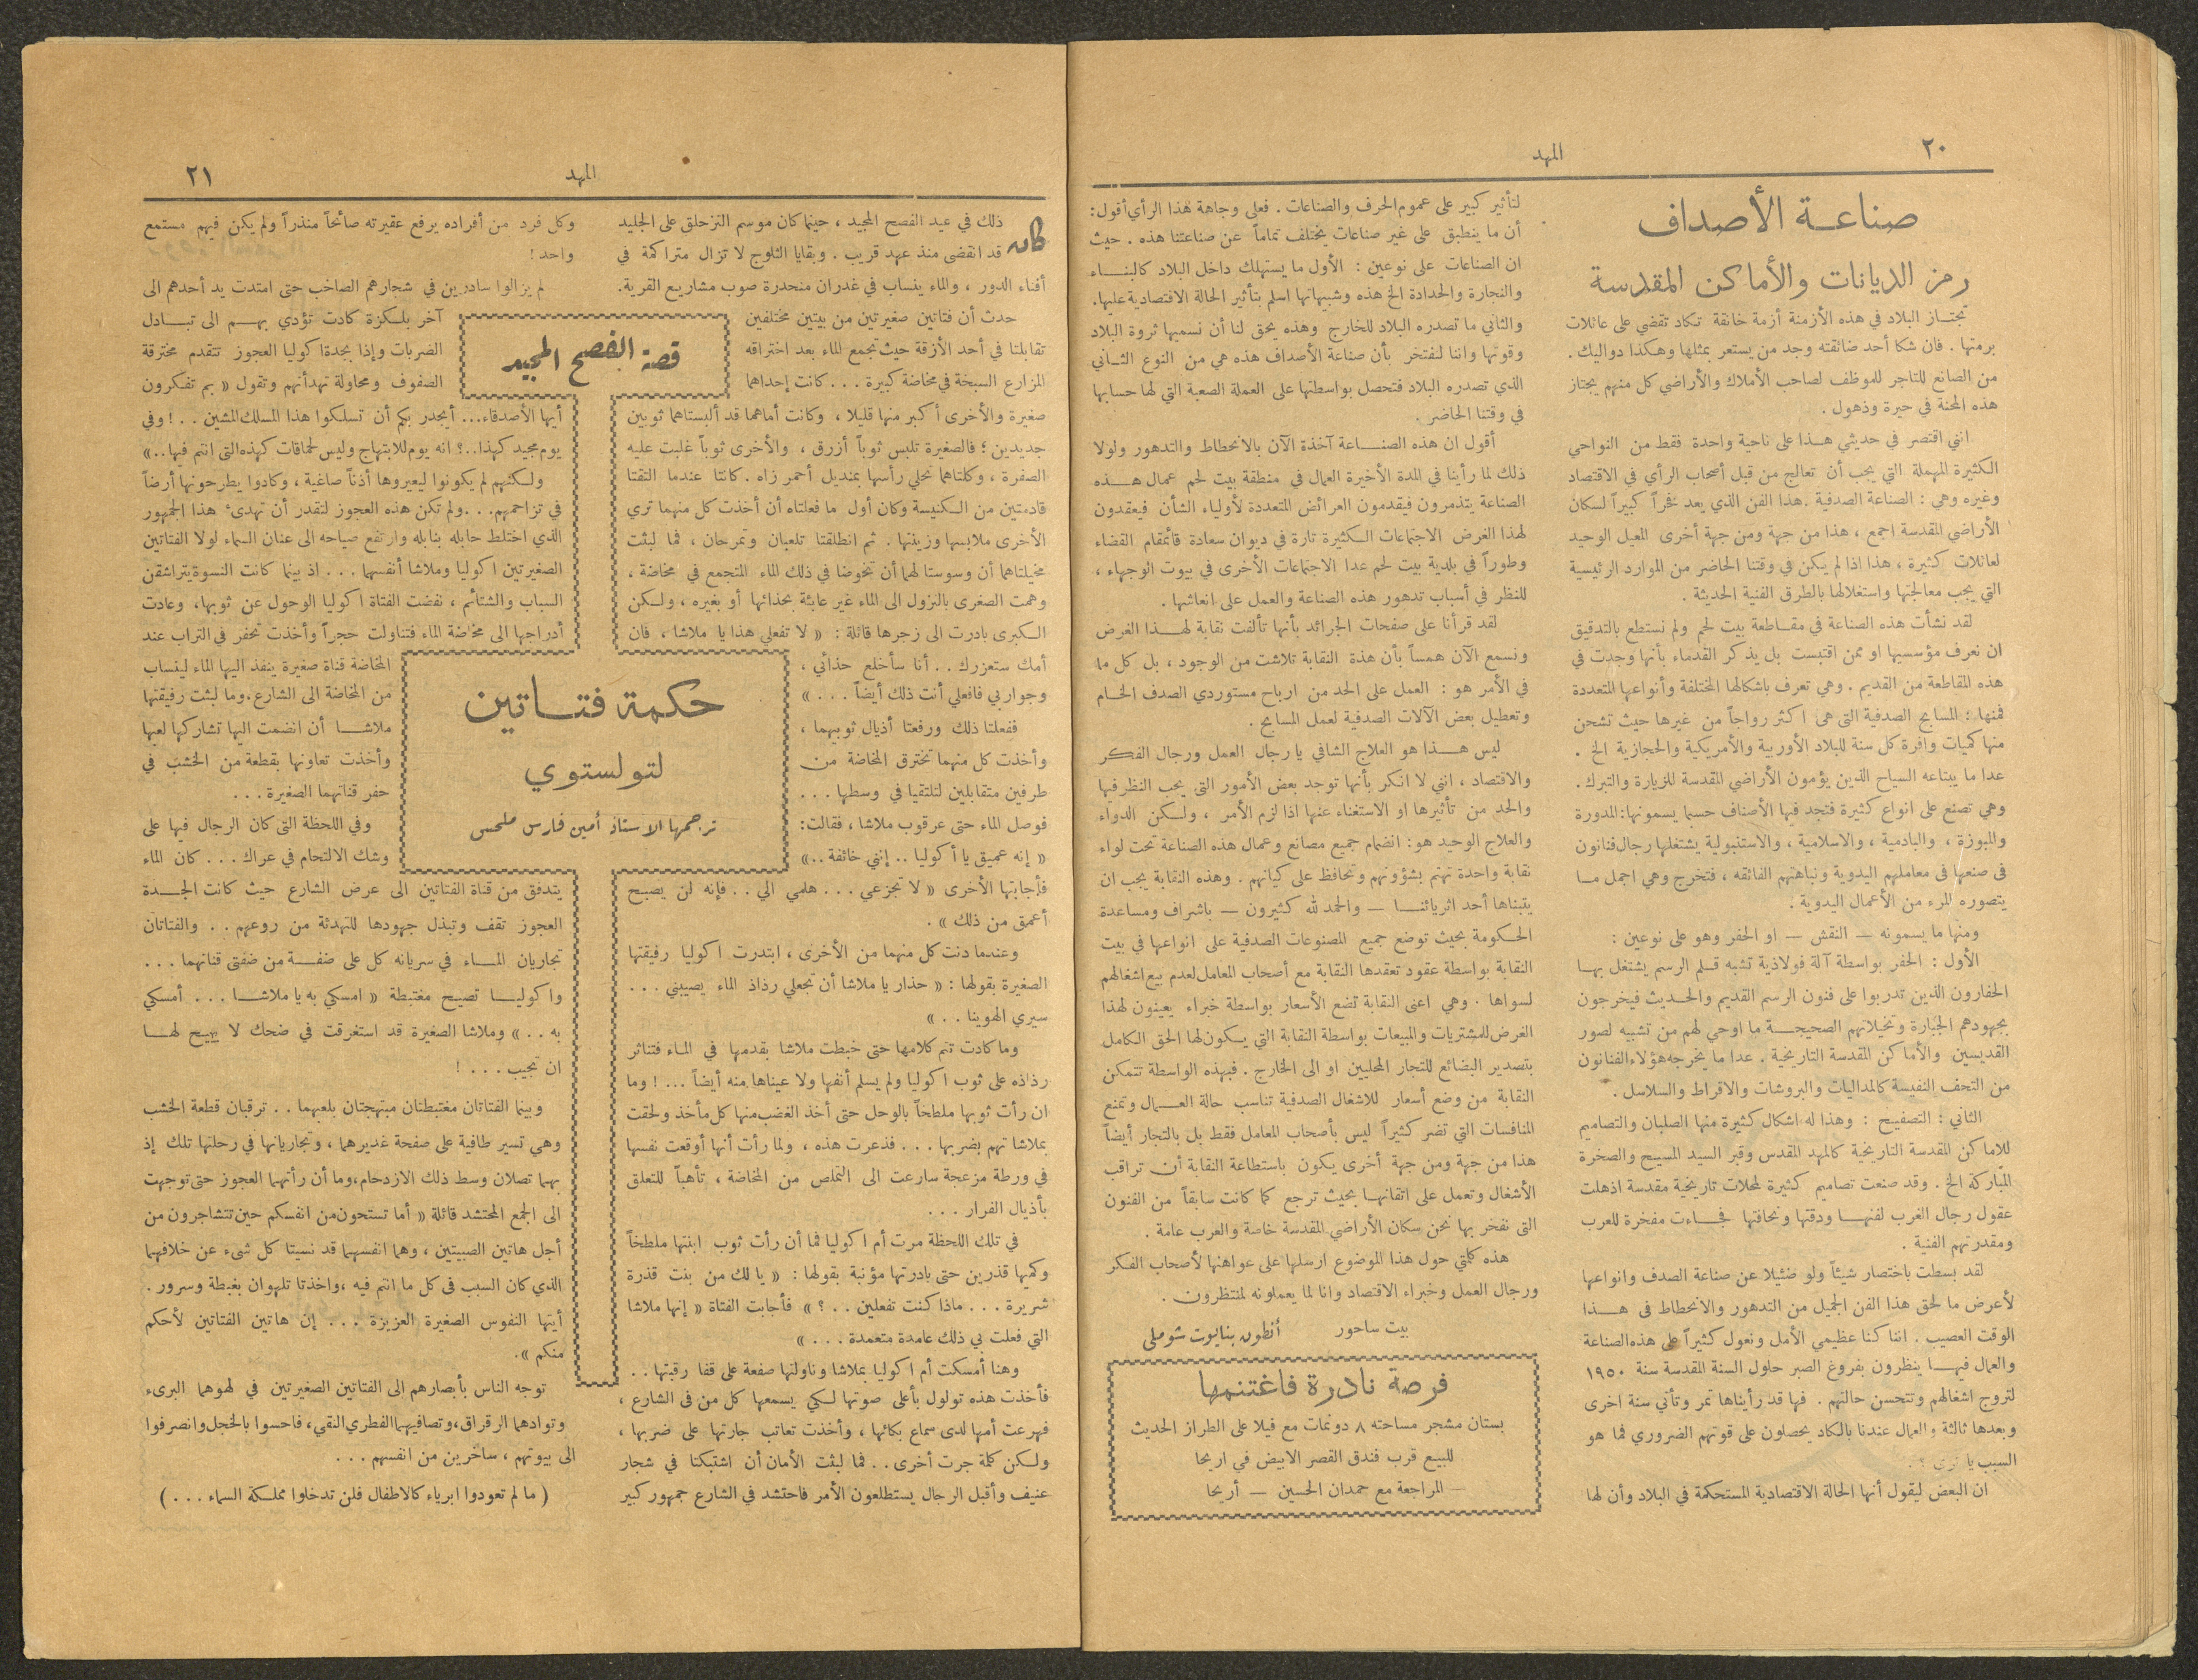 ٢٠
المهد
صناعـة الأصداف
رمز الديانات والأماكن المقدسة
تجتـاز البلاد في هذه الأزمنة أزمة خانقة تكاد تقضي على عائلات
برمتها . فان شكا أحد ضائقته وجد من يستعر بمثلها وهكذا دواليك .
من الصانع للتاجر للموظف لصاحب الأملاك والأراضي كل منهم يجتاز
هذه المحنة في حيرة وذهول .
انني اقتصر في حديثي هـذا على ناحية واحدة فقط من النواحي
الكثيرة المهملة التي يجب أن تعالج من قبل أصحاب الرأي في الاقتصاد
وغيره وهي : الصناعة الصدفية . هذا الفن الذي يعد فخراً كبيراً لسكان
الأراضي المقدسة اجمع ، هذا من جهة ومن جهة أخرى المعيل الوحيد
لعائلات كثيرة ، هذا اذا لم يكن في وقتنا الحاضر من الموارد الرئيسية
التي يجب معالجتها واستغلالها بالطرق الفنية الحديثة .
لقد نشأت هذه الصناعة في مقـاطعة بيت لحم ولم نستطع بالتدقيق
ان نعرف مؤسسيها او ممن اقتبست بل يذكر القدماء بأنها وجدت في
هذه المقاطعة من القديم . وهي تعرف باشكالها المختلفة وأنواعها المتعددة
فمنها : المسابح الصدفية التى هى اكثر رواجاً من غيرها حيث تشحن
منها كميات وافرة كل سنة للبلاد الأوربية والأمريكية والحجازية الخ .
عدا ما يبتاعه السياح الذين يؤمون الأراضي المقدسة للزيارة والتبرك .
وهي تصنع على انواع كثيرة فتجد فيها الأصناف حسبما يسمونها : المدورة
والمبوزة ، والبادمية ، والاسلامية ، والاستنبولية يشتغلها رجال فنانون
فى صنعها فى معاملهم اليدوية ونباهتهم الفائقه ، فتخرج وهي اجمل مـا
يتصوره المرء من الأعمال اليدوية .
ومنها ما يسمونه — النقش — او الحفر وهو على نوعين :
الأول : الحفر بواسطة آلة فولاذية تشبه قـلم الرسم يشتغل بهـا
الحفارون الذين تدربوا على فنون الرسم القديم والحـديث فيخرجون
بجهودهم الجبارة وتخيلاتهم الصحيحـة ما اوحي لهم من تشبيه لصور
القديسين والأماكن المقدسة التاريخية . عدا ما يخرجه هؤلاء الفنانون
من التحف النفيسة كالمداليات والبروشات والاقراط والسلاسل .
الثاني : التصفيح : وهذا له اشكال كثيرة منها الصلبان والتصاميم
للاماكن المقدسة التاريخية كالمهد المقدس وقبر السيد المسيح والصخرة
المباركة الخ . وقد صنعت تصاميم كثيرة لمحلات تاريخية مقدسة اذهلت
عقول رجال الغرب لفنهـا ودقتها ونحافتها فجـاءت مفخرة للعرب
ومقدرتهم الفنية .
لقد بسطت باختصار شيئاً ولو ضئيلا عن صناعة الصدف وانواعها
لأعرض ما لحق هذا الفن الجميل من التدهور والانحطاط فى هـذا
الوقت العصيب . اننا كنا عظيمي الأمل ونعول كثيراً على هذه الصناعة
والعمال فيهـا ينظرون بفروغ الصبر حلول السنة المقدسة سنة ١٩٥٠
لتروج اشغالهم وتتحسن حالتهم . فها قد رأيناها تمر وتأتي سنة اخرى
وبعدها ثالثة والعمال عندنا بالكاد يحصلون على قوتهم الضروري فما هو
السبب يا ترى ؟ .
ان البعض ليقول أنها الحالة الاقتصادية المستحكمة في البلاد وأن لها
لتأثير كبير على عموم الحرف والصناعات . فعلى وجاهة هذا الرأي أقول :
أن ما ينطبق على غير صناعات يختلف تماماً عن صناعتنا هذه . حيث
ان الصناعات على نوعين : الأول ما يستهلك داخل البلاد كالبنـاء
والنجارة والحدادة الخ هذه وشبيهاتها اسلم بتأثير الحالة الاقتصادية عليها.
والثاني ما تصدره البلاد للخارج وهذه يحق لنا أن نسميها ثروة البلاد
وقوتها واننا لنفتخر بأن صناعة الأصداف هذه هي من النوع الثـاني
الذي تصدره البلاد فتحصل بواسطتها على العملة الصعبة التي لها حسابها
في وقتنا الحاضر .
أقول ان هذه الصنـاعة آخذة الآن بالانحطاط والتدهور ولولا
ذلك لما رأينا في المدة الأخيرة العمال في منطقة بيت لحم عمال هـذه
الصناعة يتذمرون فيقدمون العرائض المتعددة لأولياء الشأن فيعقدون
لهذا الغرض الاجتماعات الكثيرة تارة في ديوان سعادة قائمقام القضاء
وطوراً في بلدية بيت لحم عدا الاجتماعات الأخرى في بيوت الوجهاء ،
للنظر في أسباب تدهور هذه الصناعة والعمل على انعاشها .
لقد قرأنا على صفحات الجرائد بأنها تألفت نقابة لهـذا الغرض
ونسمع الآن همساً بأن هذة النقابة تلاشت من الوجود ، بل كل ما
في الأمر هو : العمل على الحد من ارباح مستوردي الصدف الخـام
وتعطيل بعض الآلات الصدفية لعمل المسابح .
ليس هـذا هو العلاج الشافي يا رجال العمل ورجال الفكر
والاقتصاد ، انني لا انكر بأنها توجد بعض الأمور التى يجب النظر فيها
والحد من تأثيرها او الاستغناء عنها اذا لزم الأمر ، ولـكن الدواء
والعلاج الوحيد هو : انضمام جميع مصانع وعمال هذه الصناعة تحت لواء
نقابة واحدة تهتم بشؤونهم وتحافظ على كيانهم . وهذه النقابة يجب ان
يتبناها أحد اثريائنـا — والحمد لله كثيرون — باشراف ومساعدة
الحكومة بحيث توضع جميع المصنوعات الصدفية على انواعها في بيت
النقابة بواسطة عقود تعقدها النقابة مع أصحاب المعامل لعدم بيع اشغالهم
لسواها . وهي اعنى النقابة تضع الأسعار بواسطة خبراء يعينون لهذا
الغرض للمشتريات والمبيعات بواسطة النقابة التي يكون لها الحق الكامل
بتصدير البضائع للتجار المحليين او الى الخارج . فبهذه الواسطة تتمكن
النقابة من وضع أسعار للاشغال الصدفية تناسب حالة العـمال وتمنع
المنافسات التي تضر كثيراً ليس بأصحاب المعامل فقط بل بالتجار أيضاً
هذا من جهة ومن جهة أخرى يكون باستطاعة النقابة أن تراقب
الأشغال وتعمل على اتقانهـا بحيث ترجع كما كانت سابقاً من الفنون
التى نفخر بها نحن سكان الأراضي المقدسة خاصة والعرب عامة .
هذه كلمتي حول هذا الموضوع ارسلها على عواهنها لأصحاب الفكر
ورجال العمل وخبراء الاقتصاد وانا لما يعملونه لمنتظرون .
بيت ساحور أنطون بنايوت شوملى
فرصة نادرة فاغتنمها
بستان مشجر مساحته ٨ دونمات مع فيلا على الطراز الحديث
للبيع قرب فندق القصر الابيض في اريحا
— المراجعة مع حمدان الحسين — أريحا
المهد
٢١
كان ذلك في عيد الفصح المجيد ، حينما كان موسم التزحلق على الجليد
قد انقضى منذ عهد قريب . وبقايا الثلوج لا تزال متراكمة في
أفناء الدور ، والماء ينساب في غدران منحدرة صوب مشاريع القرية.
حدث أن فتاتين صغيرتين من بيتين مختلفين
تقابلتا في أحد الأزقة حيث تجمع الماء بعد اختراقه
المزارع السبخة في مخاضة كبيرة . . . كانت إحداهما
صغيرة والأخرى أكبر منها قليلا ، وكانت أماهما قد ألبستاهما ثوبين
جديدين ؛ فالصغيرة تلبس ثوباً أزرق ، والأخرى ثوباً غلبت عليه
الصفرة ، وكلتاهما تحلي رأسها بمنديل أحمر زاه . كانتا عندما التقتا
قادمتين من الكنيسة وكان أول ما فعلتاه أن أخذت كل منهما تري
الأخرى ملابسها وزينتها . ثم انطلقتا تلعبان وتمرحان ، فما لبثت
مخيلتاهما أن وسوستا لهما أن تخوضا في ذلك الماء المتجمع في مخاضة ،
وهمت الصغرى بالنزول الى الماء غير عابئة بحذائها أو بغيره ، ولـكن
الـكبرى بادرت الى زجرها قائلة : « لا تفعلي هذا يا ملاشا ، فان
أمك ستعزرك . . أنا سأخلع حذائي ،
وجواربي فافعلي أنت ذلك أيضاً . . . »
ففعلتا ذلك ورفعتا أذيال ثوبيهما ،
وأخذت كل منهما تخترق المخاضة من
طرفين متقابلين لتلتقيا في وسطها . . .
فوصل الماء حتى عرقوب ملاشا ، فقالت:
« إنه عميق يا أكوليا .. إنني خائفة ..»
فأجابتها الأخرى « لا تجزعي . . . هلمي الي . . فإنه لن يصبح
أعمق من ذلك » .
وعندما دنت كل منهما من الأخرى ، ابتدرت اكوليا رفيقتها
الصغيرة بقولها : « حذار يا ملاشا أن تجعلي رذاذ الماء يصيبني . . .
سيري الهوينا . . »
وما كادت تتم كلامها حتى خبطت ملاشا بقدمها في الماء فتناثر
رذاذه على ثوب اكوليا ولم يسلم أنفها ولا عيناها منه أيضاً . . . ! وما
ان رأت ثوبها ملطخاً بالوحل حتى أخذ الغضب منها كل مأخذ ولحقت
بملاشا تهم بضربها . . . فذعرت هذه ، ولما رأت أنها أوقعت نفسها
في ورطة مزعجة سارعت الى التملص من المخاضة ، تأهباً للتعلق
بأذيال الفرار . . .
في تلك اللحظة مرت أم اكوليا فما أن رأت ثوب ابنتها ملطخاً
وكميها قذرين حتى بادرتها مؤنبة بقولها : « يا لك من بنت قذرة
شريرة . . . ماذا كنت تفعلين . . ؟ » فأجابت الفتاة « إنها ملاشا
التي فعلت بي ذلك عامدة متعمدة . . . »
وهنا أمسكت أم اكوليا بملاشا وناولتها صفعة على قفا رقبتها . .
فأخذت هذه تولول بأعلى صوتها لـكي يسمعها كل من فى الشارع ،
فهرعت أمها لدى سماع بكائها ، وأخذت تعاتب جارتها على ضربها ،
ولـكن كلمة جرت أخرى . . فما لبثت الأمان أن اشتبكتا في شجار
عنيف وأقبل الرجال يستطلعون الأمر فاحتشد في الشارع جمهور كبير
قصة الفصح المجيد
حكمة فتـاتين
لتولستوي
ترجمها الاستاذ أمين فارس ملحس
وكل فرد من أفراده يرفع عقيرته صائحاً منذراً ولم يكن فيهم مستمع
واحد !
لم يزالوا سادرين في شجارهم الصاخب حتى امتدت يد أحدهم الى
آخر بلـكزة كادت تؤدي بهـم الى تبـادل
الضربات وإذا بجدة اكوليا العجوز تتقدم مخترقة
الصفوف ومحاولة تهدأتهم وتقول « بم تفكرون
أيها الأصدقاء... أيجدر بكم أن تسلكوا هذا المسلك المشين . . ! وفي
يوم مجيد كهذا . . ؟ انه يوم للابتهاج وليس لحماقات كهذه التى انتم فيها . . »
ولـكنهم لم يكونوا ليعيروها أذناً صاغية ، وكادوا يطرحونها أرضاً
في تزاحمهم. . . ولم تكن هذه العجوز لتقدر أن تهدئ هذا الجمهور
الذي اختلط حابله بنابله وارتفع صياحه الى عنان السماء لولا الفتاتين
الصغيرتين اكوليا وملاشا أنفسهما . . . اذ بينما كانت النسوة يتراشقن
السباب والشتائم ، نفضت الفتاة اكوليا الوحول عن ثوبها ، وعادت
أدراجها الى مخاضة الماء فتناولت حجراً وأخذت تحفر في التراب عند
المخاضة قناة صغيرة ينفذ اليها الماء لينساب
من المخاضة الى الشارع ، وما لبثت رفيقتها
ملاشـا أن انضمت اليها تشاركها لعبها
وأخذت تعاونها بقطعة من الخشب في
حفر قناتهما الصغيرة . . .
وفي اللحظة التى كان الرجال فيها على
وشك الالتحام في عراك . . . كان الماء
يتدفق من قناة الفتاتين الى عرض الشارع حيث كانت الجـدة
العجوز تقف وتبذل جهودها للتهدئة من روعهم . . والفتاتان
تجاريان المـاء في سريانه كل على ضفـة من ضفتى قناتهما . . .
واكوليـا تصيح مغتبطة « امسكي به يا ملاشـا . . . أمسكي
به . . » وملاشا الصغيرة قد استغرقت في ضحك لا يبيح لهـا
ان تجيب . . . !
وبينما الفتاتان مغتبطتان مبتهجتان بلعبهما . . ترقبان قطعة الخشب
وهي تسير طافية على صفحة غديرهما ، وتجاريانها في رحلتها تلك إذ
بهما تصلان وسط ذلك الازدحام ، وما أن رأتهما العجوز حتى توجهت
الى الجمع المحتشد قائلة « أما تستحون من انفسكم حين تتشاجرون من
أجل هاتين الصبيتين ، وهما انفسهما قد نسيتا كل شىء عن خلافهما
الذي كان السبب فى كل ما انتم فيه ، واخذتا تلهوان بغبطة وسرور .
أيتها النفوس الصغيرة العزيزة . . . إن هاتين الفتاتين لأحكم
منكم ».
توجه الناس بأبصارهم الى الفتاتين الصغيرتين في لهوهما البرىء
وتوادهما الرقراق ، وتصافيهما الفطري النقي ، فاحسوا بالخجل وانصرفوا
الى بيوتهم ، ساخرين من انفسهم . . .
( ما لم تعودوا ابرياء كالاطفال فلن تدخلوا مملـكة السماء . . . )